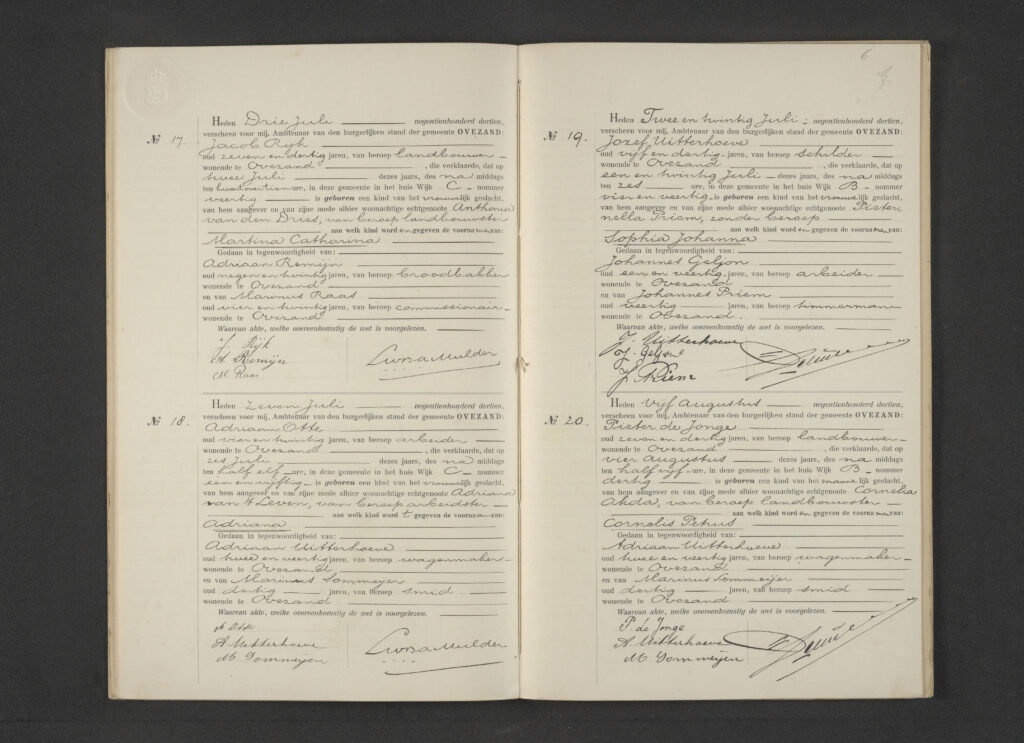 № 17.
Heden Drie Juli negentienhonderd dertien,
verscheen voor mij, Ambtenaar van den burgerlijken stand der gemeente OVEZAND:
Jacob Rijk
oud zeven en dertig jaren, van beroep landbouwer
wonende te Ovezand, die verklaarde, dat op
twee Juli dezes jaars, des na middags
ten kwartvoortien ure, in deze gemeente in het huis Wijk C nommer
veertig is geboren een kind van het vrouwelijk geslacht,
van hem aangever en van zijne mede alhier woonachtige echtgenoote Anthonia
van den Dries, van beroep landbouwster
aan welk kind worden gegeven de voornamen van:
Martina Catharina
Gedaan in tegenwoordigheid van:
Adriaan Remijn
oud negen en twintig jaren, van beroep broodbakker
wonende te Ovezand
en van Marinus Raas
oud vier en twintig jaren, van beroep commissionair
wonende te Ovezand
Waarvan akte, welke overeenkomstig de wet is voorgelezen.
J Rijk
A Remijn
M Raas
Mulder
№ 18.
Heden Zeven Juli negentienhonderd dertien,
verscheen voor mij, Ambtenaar van den burgerlijken stand der gemeente OVEZAND:
Adriaan Otte
oud vier en twintig jaren, van beroep arbeider
wonende te Ovezand, die verklaarde, dat op
zes Juli dezes jaars, des na middags
ten half elf ure, in deze gemeente in het huis Wijk C nommer
een en vijftig is geboren een kind van het vrouwelijk geslacht,
van hem aangever en van zijne mede alhier woonachtige echtgenoote Adriana
van 't Leven, van beroep arbeidster
aan welk kind wordt gegeven de voornaam van:
Adriana
Gedaan in tegenwoordigheid van:
Adriaan Uitterhoeve
oud twee en veertig jaren, van beroep wagenmaker
wonende te Ovezand
en van Marinus Sommeijer
oud dertig jaren, van beroep smid
wonende te Ovezand
Waarvan akte, welke overeenkomstig de wet is voorgelezen.
A Otte
A Uitterhoeve
M Sommeijer
Mulder
6
№ 19.
Heden Twee en twintig Juli negentienhonderd dertien,
verscheen voor mij, Ambtenaar van den burgerlijken stand der gemeente OVEZAND:
Jozef Uitterhoeve
oud vijf en dertig jaren, van beroep schilder
wonende te Ovezand, die verklaarde, dat op
een en twintig Juli dezes jaars, des na middags
ten zes ure, in deze gemeente in het huis Wijk B nommer
vier en veertig is geboren een kind van het vrouwelijk geslacht,
van hem aangever en van zijne mede alhier woonachtige echtgenoote Pieter
nella Priem, zonder beroep
aan welk kind worden gegeven de voornamen van:
Sophia Johanna
Gedaan in tegenwoordigheid van:
Johannes Geljon
oud een en veertig jaren, van beroep arbeider
wonende te Ovezand
en van Johannes Priem
oud veertig jaren, van beroep timmerman
wonende te Ovezand.
Waarvan akte, welke overeenkomstig de wet is voorgelezen.
J. Uitterhoeve
J. Geljon
J Priem
№ 20.
Heden Vijf Augustus negentienhonderd dertien,
verscheen voor mij, Ambtenaar van den burgerlijken stand der gemeente OVEZAND:
Pieter de Jonge
oud zeven en dertig jaren, van beroep landbouwer
wonende te Ovezand, die verklaarde, dat op
vier Augustus dezes jaars, des na middags
ten half vijf ure, in deze gemeente in het huis Wijk B nommer
dertig is geboren een kind van het mannelijk geslacht,
van hem aangever en van zijne mede alhier woonachtige echtgenoote Cornelia
van beroep landbouwster
aan welk kind worden gegeven de voornamen van:
Cornelis Petrus
Gedaan in tegenwoordigheid van:
Adriaan Uitterhoeve
oud twee en veertig jaren, van beroep wagenmaker
wonende te Ovezand
en van Marinus Sommeijer
oud dertig jaren, van beroep smid
wonende te Ovezand
Waarvan akte, welke overeenkomstig de wet is voorgelezen.
P. de Jonge
A. Uitterhoeve
M Sommeijer